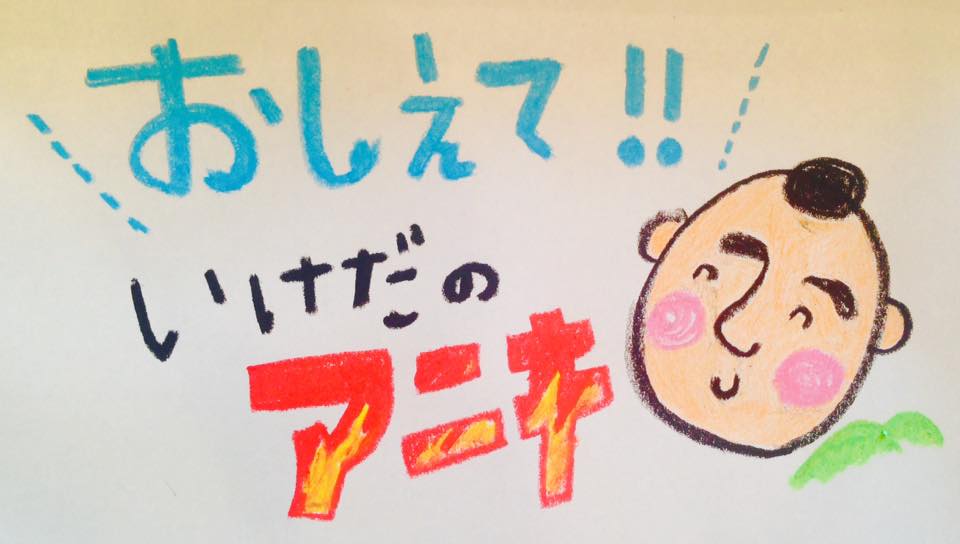 おしえて!!
いけだの
アニキ